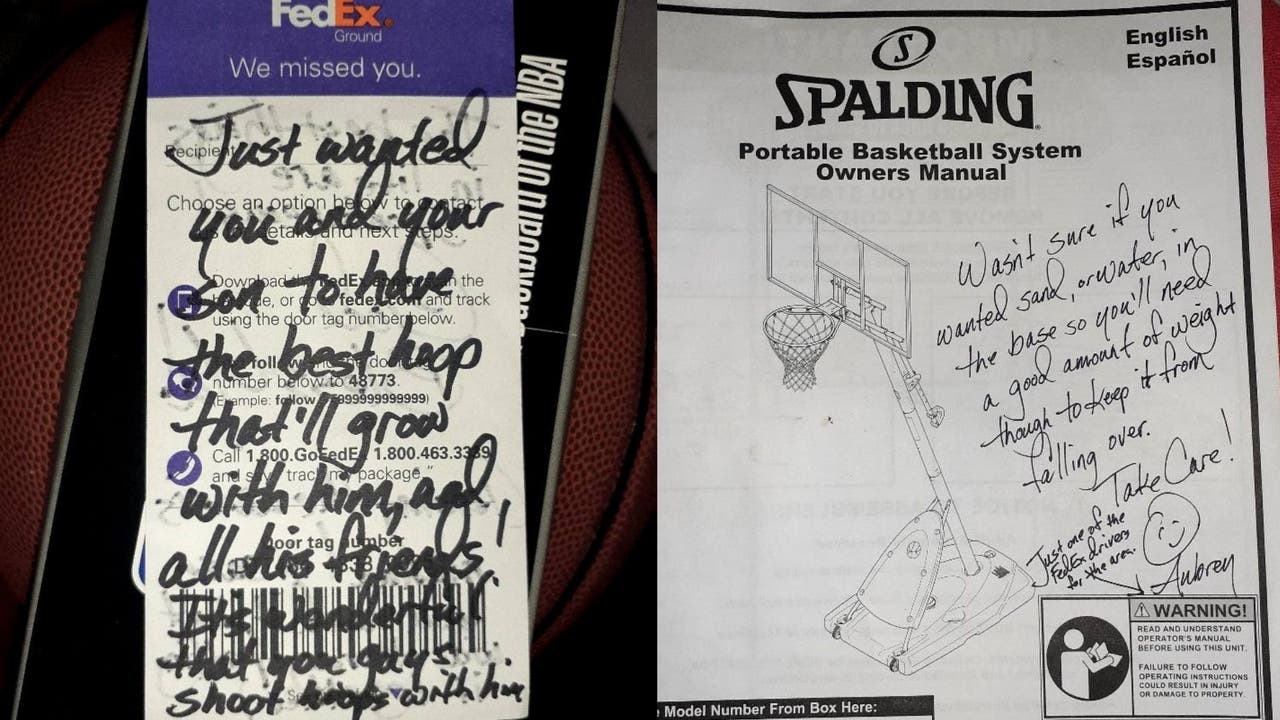 FedEx®
Ground
We missed you.
Just wanted
you and your
son to have
the best hoop
that'll grow
with him, and
all his friends!
Its wonderful
that you guys
shoot hoops with him
Recipient
Choose an option below to contact
details and next steps.
Download the FedEx
, or go fedex.com and track
using the door tag number below.
follow
number below to 48773.
(Example: follow 999999999999)
Call 1.800.GoFedEx 1.800.463.3339
and say " track my package "
Door tag number
Backboard of the NBA
S
SPALDING®
English
Español
Portable Basketball System
Owners Manual
Wasn't sure if you
wanted sand, or water, in
the base so you'll need
a good amount of weight
though to keep it from
falling over.
Take Care!
Just one of the
FedEx drivers
for the area.
Aubrey
WARNING!
READ AND UNDERSTAND
OPERATOR'S MANUAL
BEFORE USING THIS UNIT.
FAILURE TO FOLLOW
OPERATING INSTRUCTIONS
COULD RESULT IN INJURY
OR DAMAGE TO PROPERTY.
Model Number From Box Here: